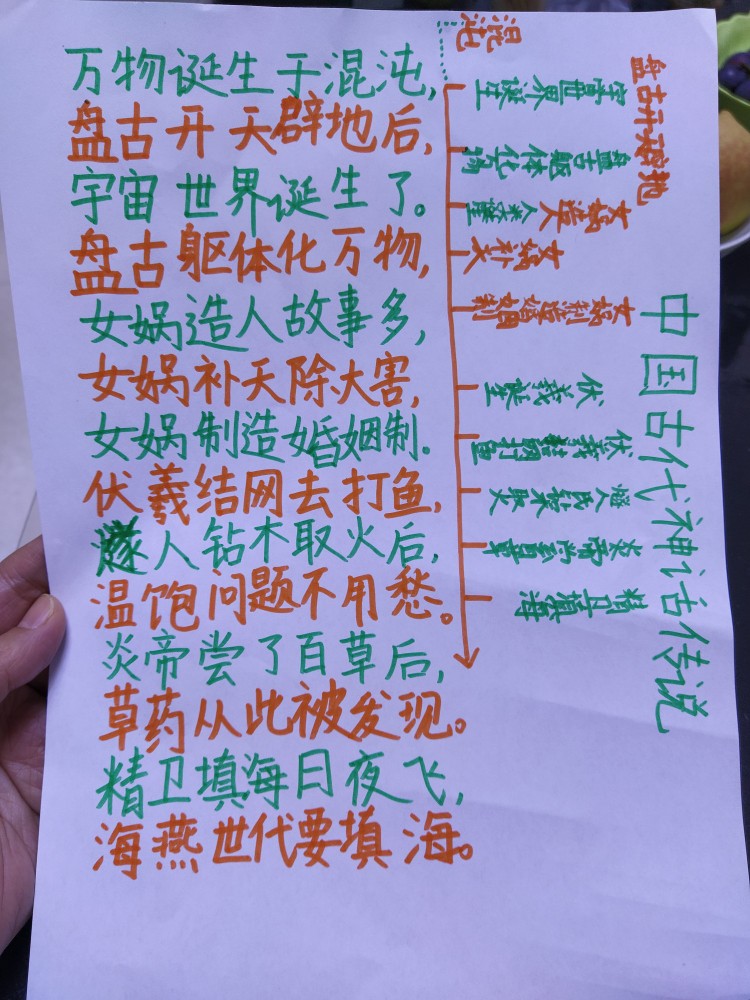 万物诞生于混沌,
盘古开天辟地后,
宇宙世界诞生了。
盘古躯体化万物,
女娲造人故事多,
女娲补天除大害,
女娲制造婚姻制。
伏羲结网去打鱼,
燧人钻木取火后,
温饱问题不用愁。
炎帝尝了百草后,
草药从此被发现。
精卫填海日夜飞,
海燕世代要填海。
混沌
盘古开天辟地
宇宙世界诞生
盘古躯体化万物
女娲造人
人类诞生
女娲补天
女娲制造婚姻制
伏羲诞生
伏羲结网打鱼
燧人氏钻木取火
炎帝尝百草
精卫填海
中国古代神话传说